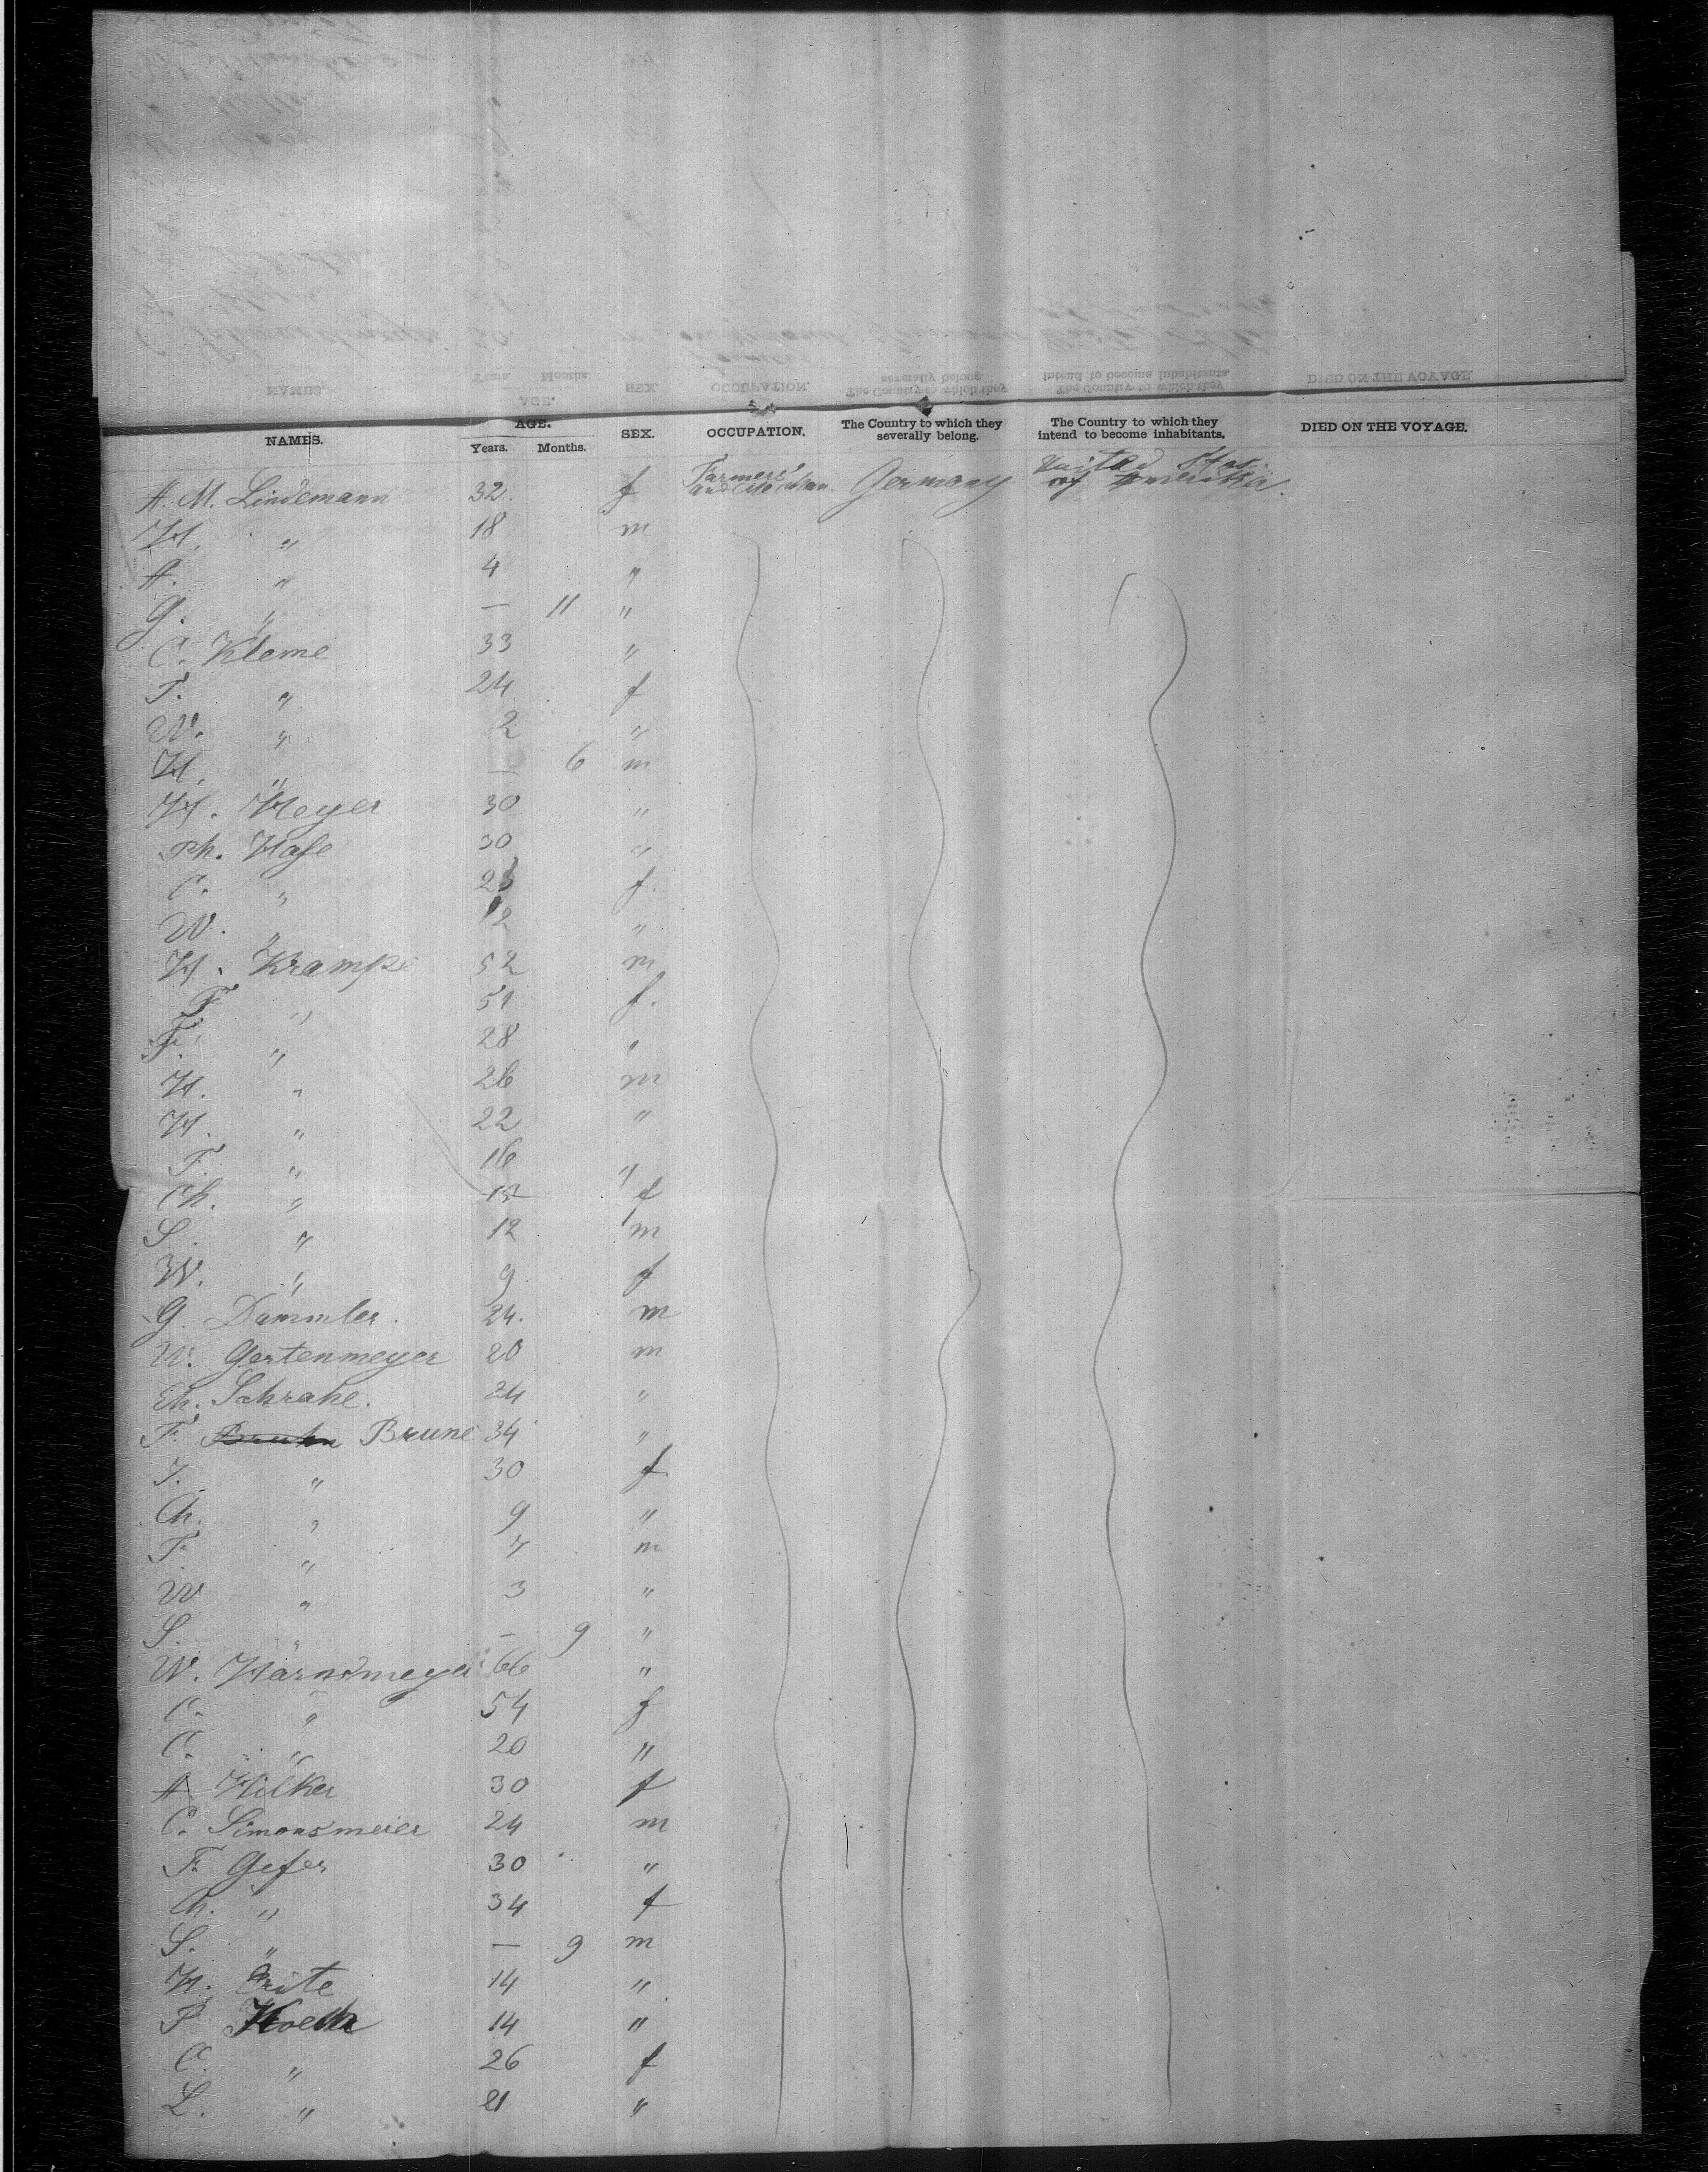 NAMES. AGE. Years. Months. SEX. OCCUPATION. The Country to which they severally belong. The Country to which they intend to become inhabitants. DIED ON THE VOYAGE.
A. M. Lindemann 32. f Farmers and Germany United Stat. of Amerika.
H. " 18 m
A. " 4 "
G. " — 11 "
C. Kleme 33 "
T. " 24 f
W. " 2 "
H. " — 6 m
H. Meyer 30 "
Ph. Hase 30 "
C. " 23 f.
W. " 12 "
H. Krampe 52 m
F. " 51 f.
F. " 28 "
H. " 26 m
H. " 22 "
F. " 16 "
Ch. " 15 f
S. " 12 m
W. " 9 f
G. Dammler. 24. m
W. Gertenmeyer 20 m
Ch. Schrahe. 24 "
F. Bruhn Brune 34 "
J. " 30 f
Ch. " 9 "
F. " 7 m
W " 3 "
S. " — 9 "
W. Harndmeyer 66 "
C. " 54 f
C. " 20 "
A Hilker 30 f
C. Simonsmeier 24 m
F. Gefer 30 "
Ch. " 34 f
S. " — 9 m
H. 14 "
14 "
C. " 26 f
L. " 21 "